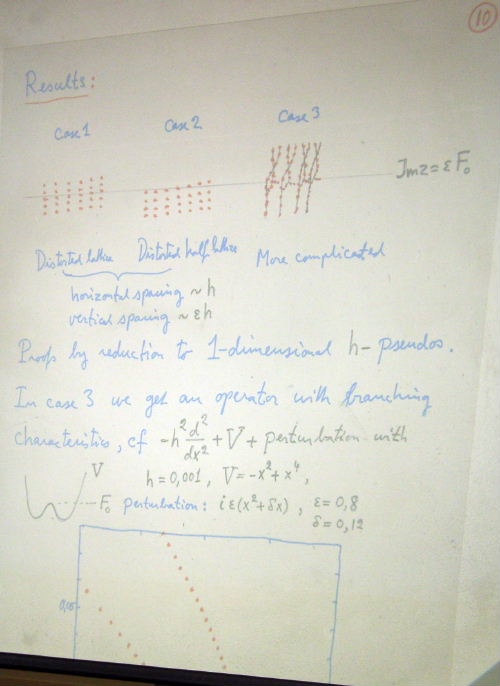 10
Results:
Case 1 Case 2 Case 3
Im z = ε F₀
Distorted lattice Distorted half lattice More complicated
horizontal spacing ~ h
vertical spacing ~ εh
Proofs by reduction to 1-dimensional h-pseudos.
In case 3 we get an operator with branching
characteristics, cf -h² d²/dx² + V + perturbation with
V h = 0,001, V = -x² + x⁴,
F₀ perturbation: iε(x² + δx), ε = 0,8
δ = 0,12